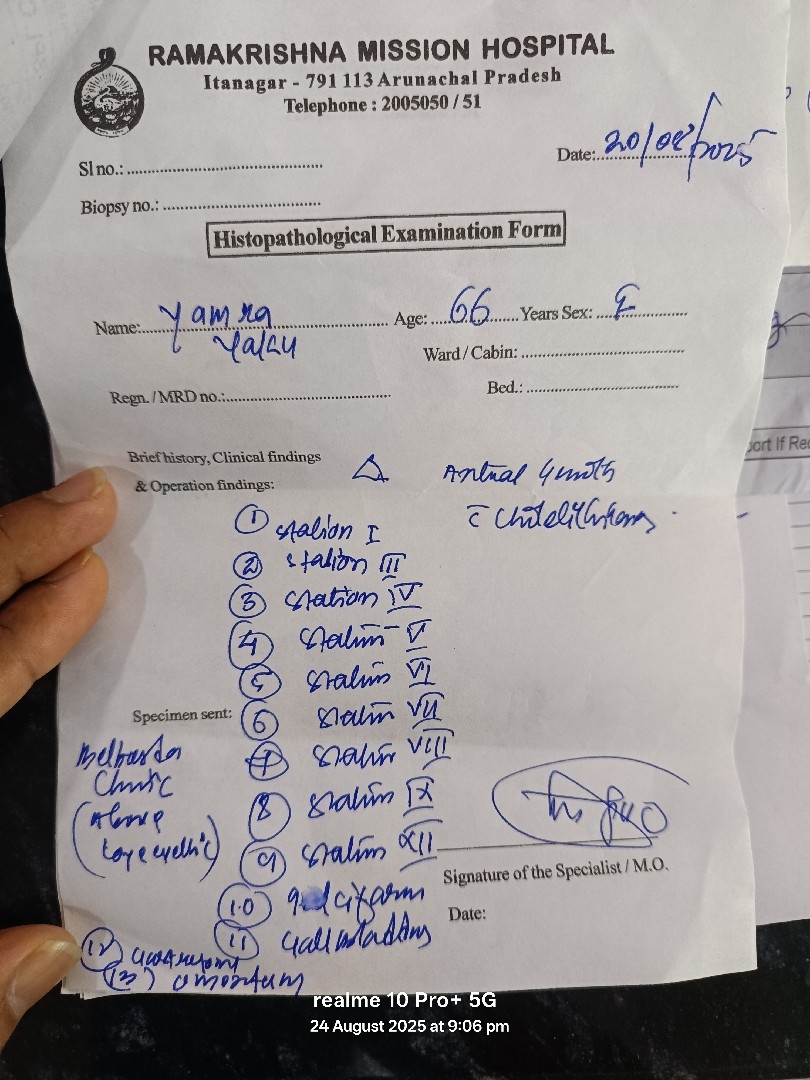 RAMAKRISHNA MISSION HOSPITAL
Itanagar - 791 113 Arunachal Pradesh
Telephone : 2005050 / 51
Sl no.:
Date: 20/08/2025
Biopsy no.:
Histopathological Examination Form
Name: Yamra
Age: 66 Years Sex: F
Ward / Cabin:
Regn. / MRD no.:
Bed.:
Brief history, Clinical findings
& Operation findings:
△ Antral Growth
c̄
① Station I
② Station III
③ Station IV
④ Station V
⑤ Station VI
Specimen sent:
⑥ Station VII
⑦ Station VIII
⑧ Station IX
⑨ Station XII
Clinic
(Above
Signature of the Specialist / M.O.
⑩
Date:
⑪ Gall bladder
⑫
⑬ omentum
port If Re
realme 10 Pro+ 5G
24 August 2025 at 9:06 pm